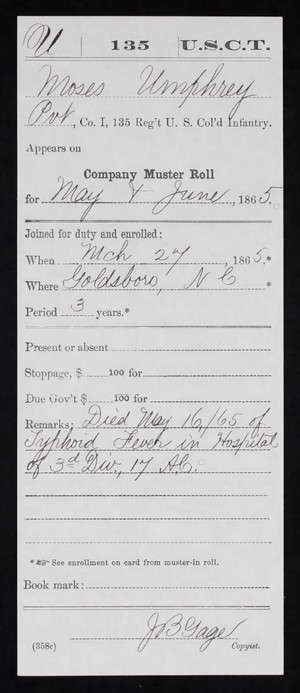 U | 135 | U.S.C.T.
Moses Umphrey
Pvt, Co. I, 135 Reg't U. S. Col'd Infantry.
Appears on
Company Muster Roll
for May & June, 1865.
Joined for duty and enrolled:
When Mch 27, 1865.*
Where Goldsboro, N C *
Period 3 years.*
Present or absent
Stoppage, $ 100 for
Due Gov't $ 100 for
Remarks: Died May 16/65 of
Typhoid Fever in Hospital
of 3d Div., 17 A.C.
* See enrollment on card from muster-in roll.
Book mark:
J B Gage
(358c) Copyist.